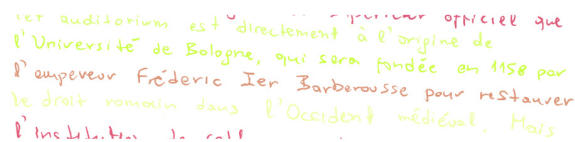 officiel que
1er auditorium est directement à l'origine de
l'Université de Bologne, qui sera fondée en 1158 par
l'empereur Fréderic Ier Barberousse pour restaurer
le droit romain dans l'Occident médiéval. Mais
l'institution